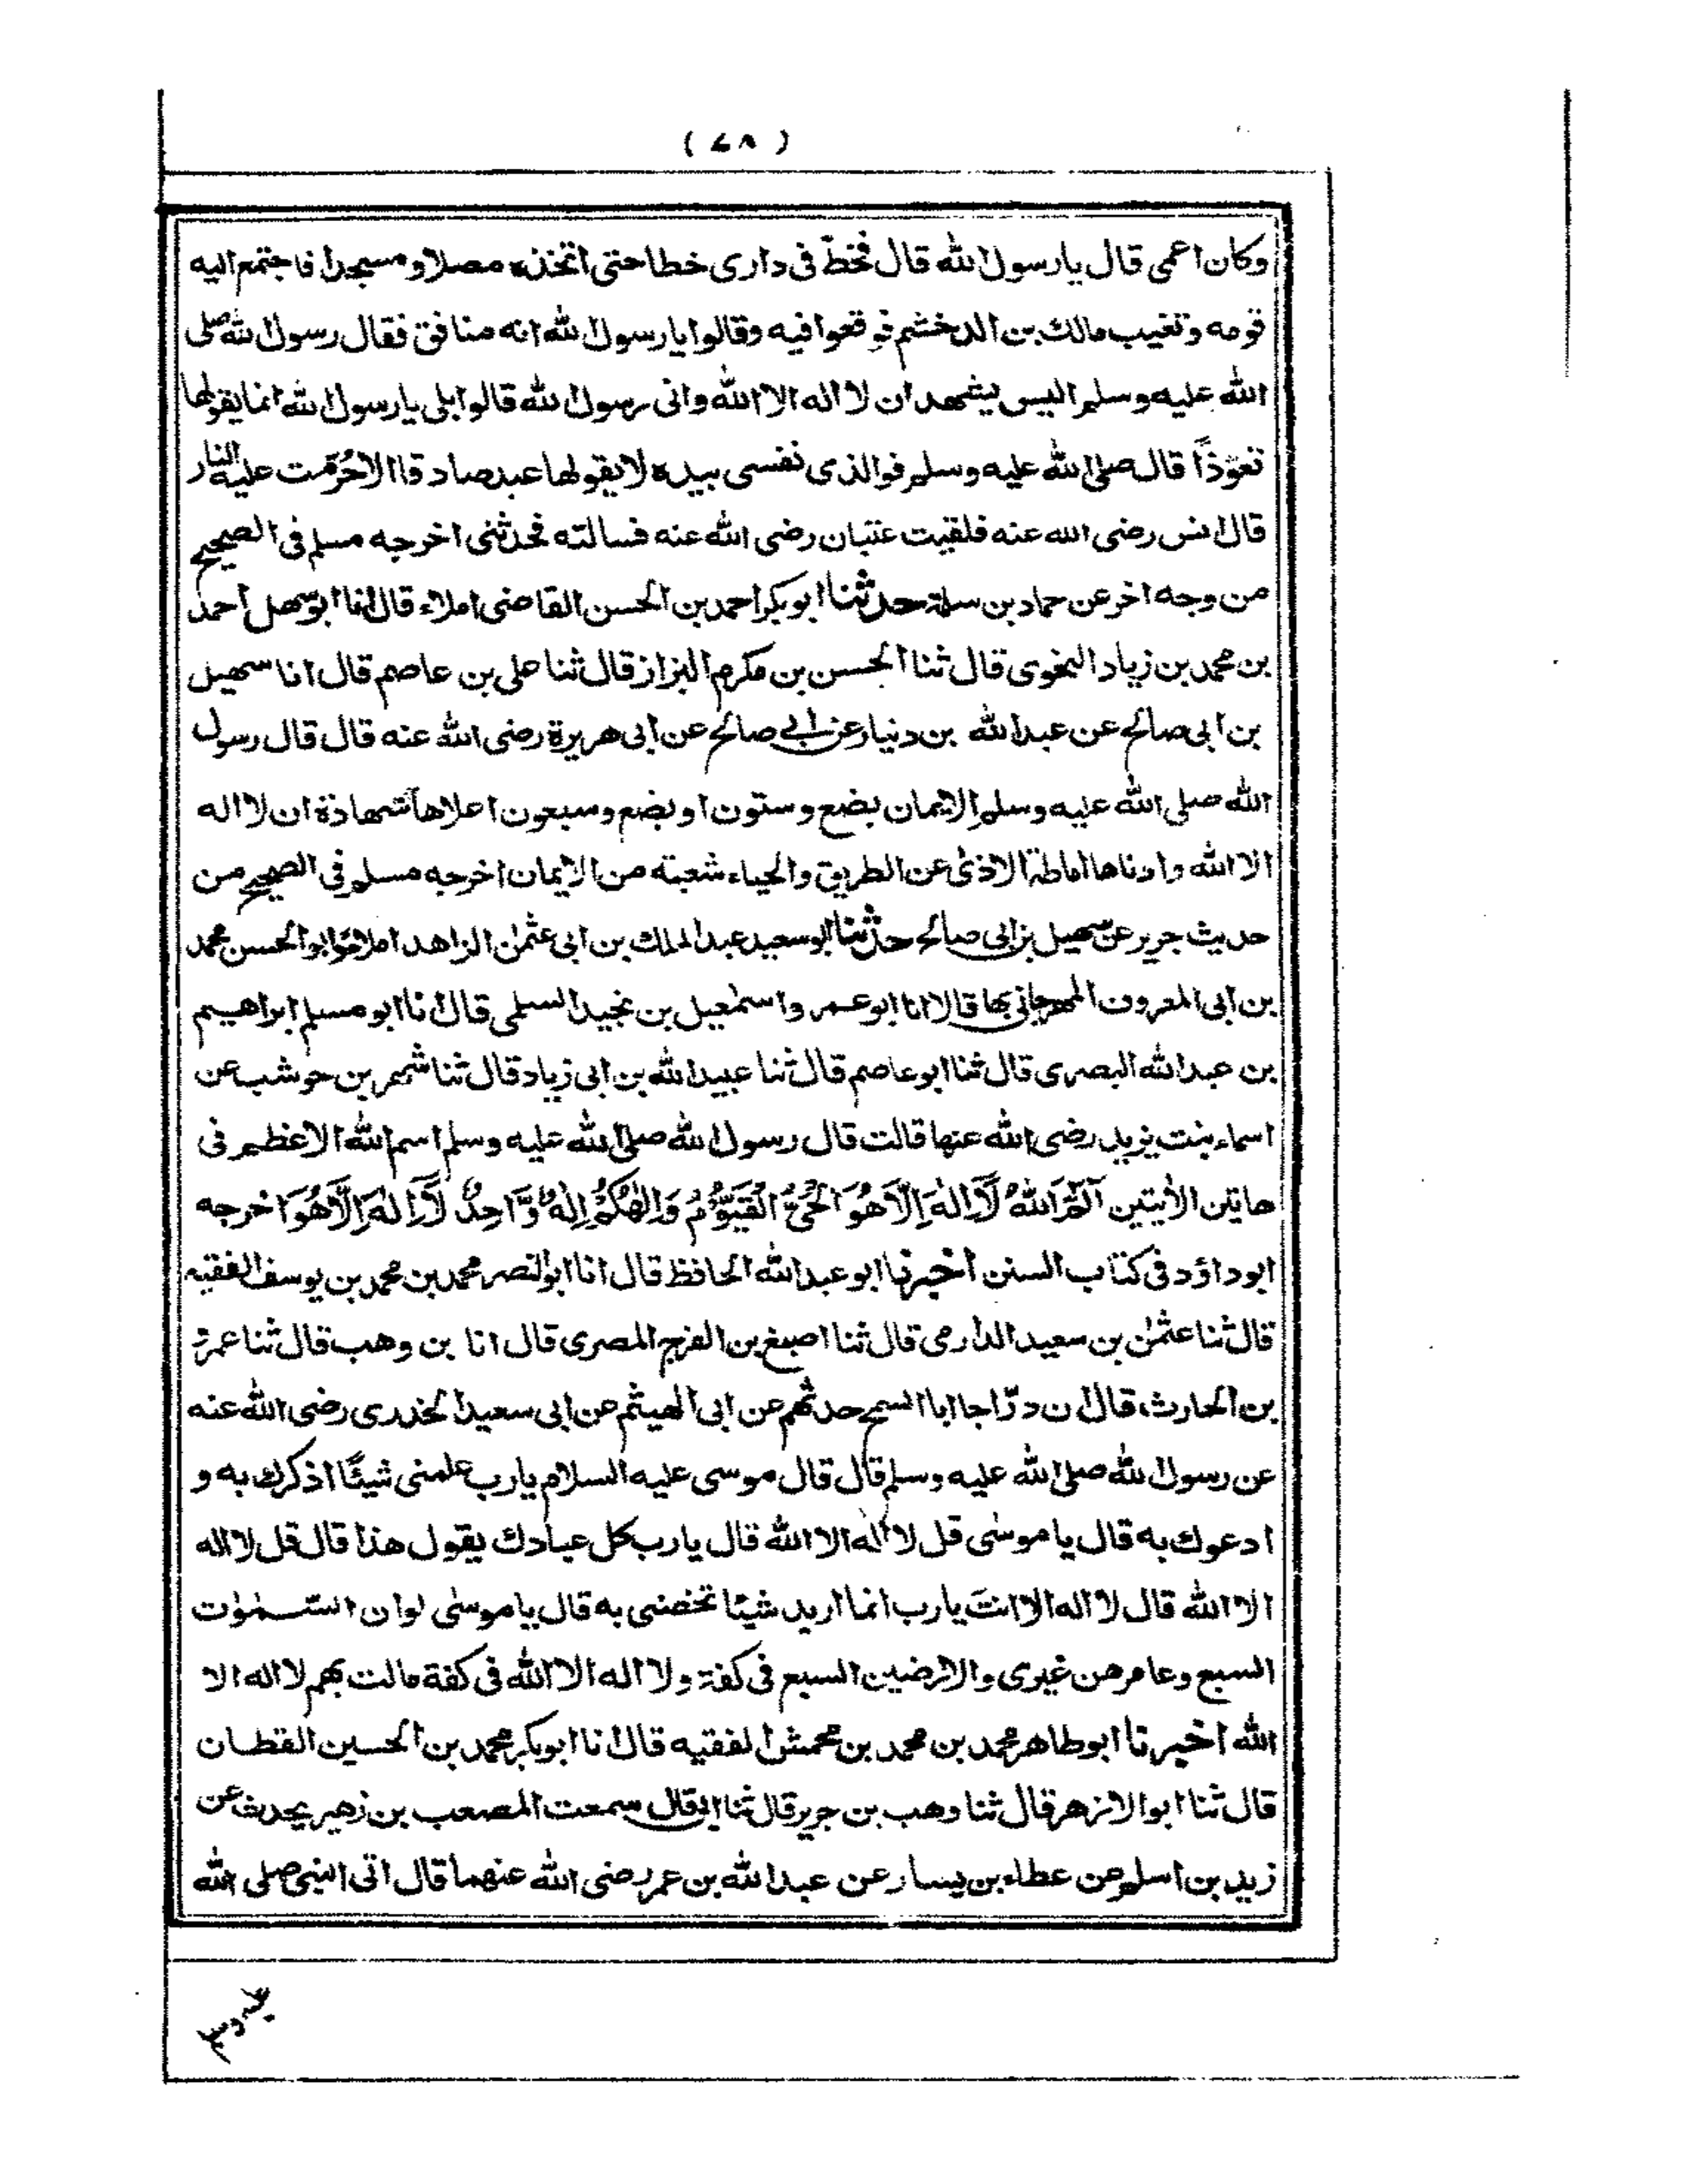 (٧٨)
وكان اعمى قال يا رسول الله قال فخطّ فى دارى خطا حتى اتخذه مصلا و مسجدا فاجتمع اليه
قومه وتغيب مالك بن الدخشم فوقعوا فيه وقالوا يا رسول الله انه منافق فقال رسول الله صلى
الله عليه وسلم اليس يشهد ان لا اله الا الله وانى رسول الله قالوا بلى يا رسول الله انما يقولها
تعوّذاً قال صلى الله عليه وسلم فوالذى نفسى بيده لا يقولها عبد صادقا الا حُرّمت عليه النار
قال انس رضى الله عنه فلقيت عتبان رضى الله عنه فسالته فحدثنى اخرجه مسلم فى الصحيح
من وجه اخر عن حماد بن سلمة حدثنا ابو بكر احمد بن الحسن القاضى املاء قال انا ابو سهل احمد
بن محمد بن زياد النحوى قال ثنا الحسن بن مكرم البزاز قال ثنا على بن عاصم قال انا سهيل
بن ابى صالح عن عبد الله بن دنيار عن ابى صالح عن ابى هريرة رضى الله عنه قال قال رسول
الله صلى الله عليه وسلم الايمان بضع وستون او بضع وسبعون اعلاها شهادة ان لا اله
الا الله وادناها اماطة الاذى عن الطريق والحياء شعبة من الايمان اخرجه مسلم فى الصحيح من
حديث جرير عن سهيل بن ابى صالح حدثنا ابو سعيد عبد الملك بن ابى عثمٰن الزاهد املاء وابو الحسن محمد
بن ابى المعروف المهرجانى بها قالا انا ابو عمرو اسمٰعيل بن نجيد السلمى قال انا ابو مسلم ابراهيم
بن عبد الله البصرى قال ثنا ابو عاصم قال ثنا عبيد الله بن ابى زياد قال ثنا شهر بن حوشب عن
اسماء بنت يزيد رضى الله عنها قالت قال رسول الله صلى الله عليه وسلم اسم الله الاعظم فى
هاتين الأيتين آلٓمّٓ اَللّٰهُ لَآ اِلٰهَ اِلَّا هُوَ الْحَىُّ الْقَيُّوْمُ وَاِلٰهُكُمْ اِلٰهٌ وَّاحِدٌ لَآ اِلٰهَ اِلَّا هُوَ اخرجه
ابو داؤد فى كتاب السنن اخبرنا ابو عبد الله الحافظ قال انا ابو النصر محمد بن محمد بن يوسف الفقيه
قال ثنا عثمٰن بن سعيد الدارمى قال ثنا اصبغ بن الفرج المصرى قال انا بن وهب قال ثنا عمرو
بن الحارث قال ان درّاجا ابا السمح حدثهم عن ابى الهيثم عن ابى سعيد الخدرى رضى الله عنه
عن رسول الله صلى الله عليه وسلم قال قال موسى عليه السلام يا رب علمنى شيئًا اذكرك به و
ادعوك به قال يا موسٰى قل لا اله الا الله قال يا رب كل عبادك يقول هذا قال قل لا اله
الا الله قال لا اله الا انت يا رب انما اريد شيئا تخصنى به قال يا موسٰى لو ان السّمٰوٰت
السبع وعامرهن غيرى والارضين السبع فى كفة ولا اله الا الله فى كفة مالت بهم لا اله الا
الله اخبرنا ابو طاهر محمد بن محمد بن محمش الفقيه قال انا ابو بكر محمد بن الحسين القطان
قال ثنا ابو الازهر قال ثنا وهب بن جرير قال ثنا ابى قال سمعت المصعب بن زهير يحدث عن
زيد بن اسلم عن عطاء بن يسار عن عبد الله بن عمر رضى الله عنهما قال اتى النبى صلى الله